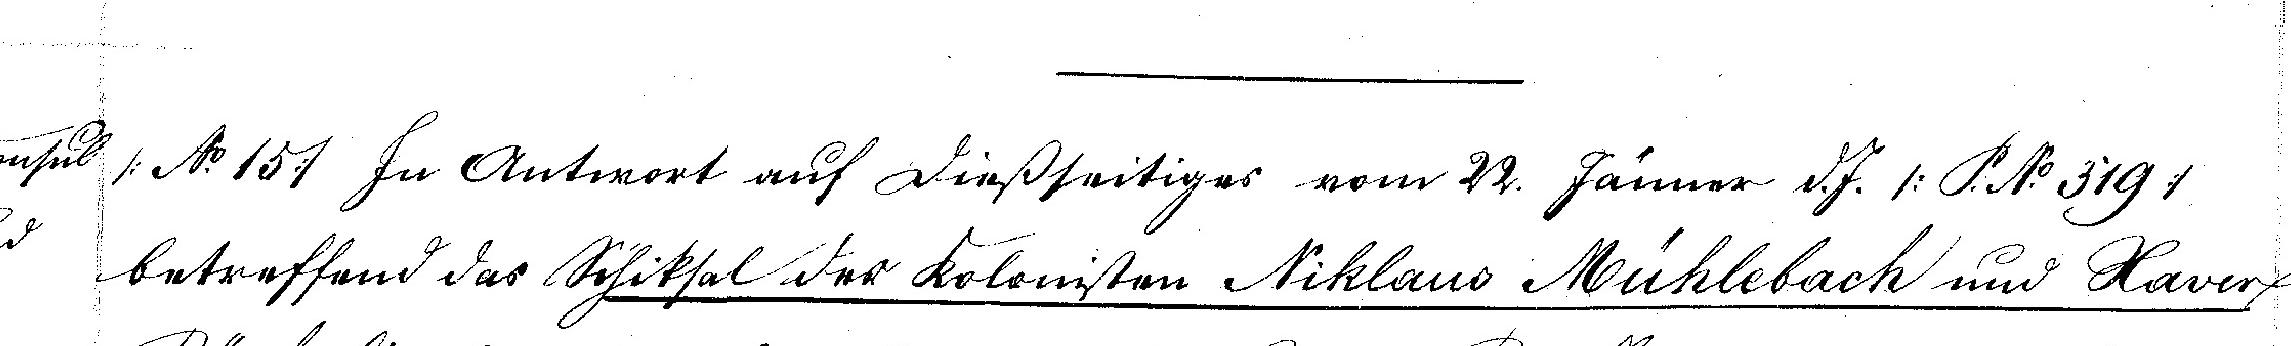 /: No. 15 :/ In Antwort auf Dießseitiges vom 22. Jänner d.J. /: P. No. 319 :/
betreffend das Schiksal der Kolonisten Niklaus Mühlebach und Xaver